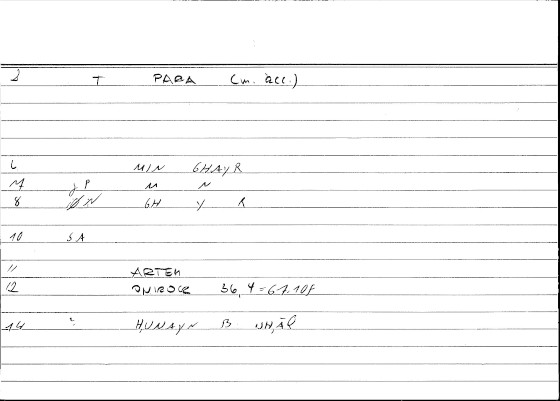 T PARA (m. acc.)
6 MIN GHAYR
M N
8 GH Y R
10 SA
11 ARTEM
12 ONIROCR 36,4=67.10f
14 ? H,UNAYN B